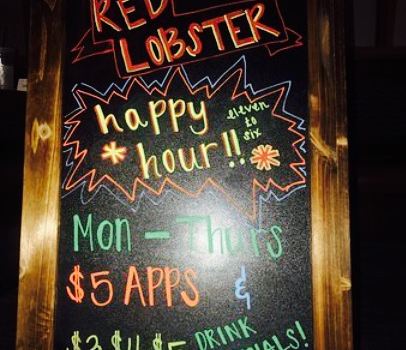 RED
LOBSTER
happy
eleven
to
six
* hour!! *
Mon - Thurs
$5 APPS &
$3 $4 $5 DRINK
SPECIALS!